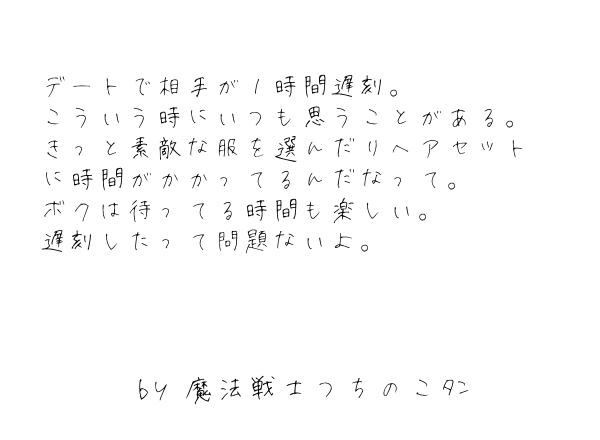 デートで相手が1時間遅刻。
こういう時にいつも思うことがある。
きっと素敵な服を選んだりヘアセット
に時間がかかってるんだなって。
ボクは待ってる時間も楽しい。
遅刻したって問題ないよ。
by 魔法戦士つちのこタン